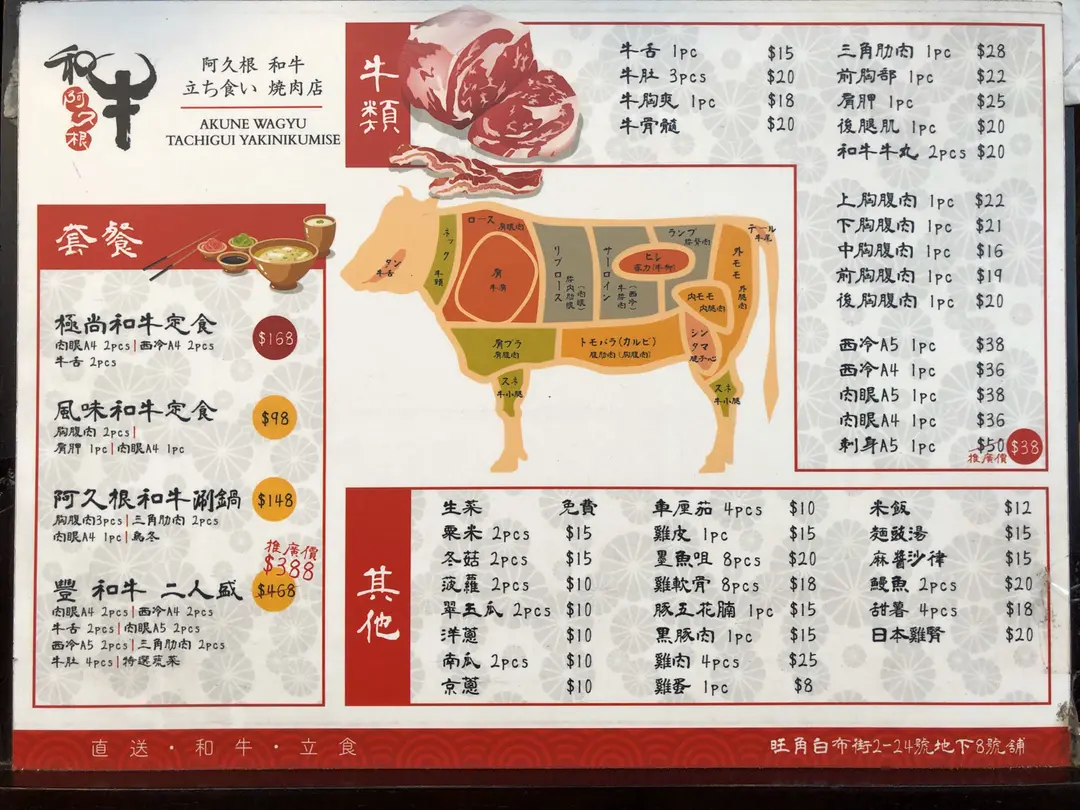 和牛
阿久根
阿久根 和牛
立ち食い 焼肉店
AKUNE WAGYU
TACHIGUI YAKINIKUMISE
套餐
極尚和牛定食 $168
肉眼A4 2pcs|西冷A4 2pcs
牛舌 2pcs
風味和牛定食 $98
胸腹肉 2pcs|
肩胛 1pc|肉眼A4 1pc
阿久根和牛涮鍋 $148
胸腹肉3pcs|三角肋肉 2pcs
肉眼A4 1pc|烏冬
推廣價
$388
豐 和牛 二人盛 $468
肉眼A4 2pcs|西冷A4 2pcs
牛舌 2pcs|肉眼A5 2pcs
西冷A5 2pcs|三角肋肉 2pcs
牛肚 4pcs|特選蔬菜
牛類
牛舌 1pc $15
牛肚 3pcs $20
牛胸爽 1pc $18
牛骨髓 $20
三角肋肉 1pc $28
前胸部 1pc $22
肩胛 1pc $25
後腿肌 1pc $20
和牛牛丸 2pcs $20
上胸腹肉 1pc $22
下胸腹肉 1pc $21
中胸腹肉 1pc $16
前胸腹肉 1pc $19
後胸腹肉 1pc $20
西冷A5 1pc $38
西冷A4 1pc $36
肉眼A5 1pc $38
肉眼A4 1pc $36
刺身A5 1pc $50 $38
推廣價
タン
牛舌
ネック
牛頸
ロース
肩眼肉
肩
牛肩
リブロース
(肉眼)
サーロイン
(西冷)
ランプ
ヒレ
テール
牛尾
外モモ
外腿肉
内モモ
内腿肉
シンタマ
肩ブラ
肩腹肉
トモバラ(カルビ)
腹肋肉(胸腹肉)
スネ
牛小腿
スネ
牛小腿
其他
生菜 免費
粟米 2pcs $15
冬菇 2pcs $15
菠蘿 2pcs $10
翠玉瓜 2pcs $10
洋蔥 $10
南瓜 2pcs $10
京蔥 $10
車厘茄 4pcs $10
雞皮 1pc $15
墨魚咀 8pcs $20
雞軟骨 8pcs $18
豚五花腩 1pc $15
黑豚肉 1pc $15
雞肉 4pcs $25
雞蛋 1pc $8
米飯 $12
麵豉湯 $15
麻醬沙律 $15
鰻魚 2pcs $20
甜薯 4pcs $18
日本雞腎 $20
直送・和牛・立食
旺角白布街2-24號地下8號舖